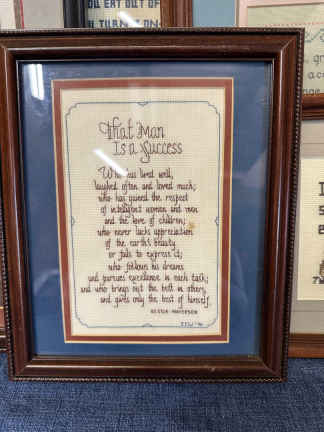 YOU EAT OUT OF
That Man
Is a Success
Who has lived well,
laughed often and loved much;
who has gained the respect
of intelligent women and men
and the love of children;
who never lacks appreciation
of the earth's beauty
or fails to express it;
who follows his dreams
and pursues excellence in each task;
and who brings out the best in others,
and gives only the best of himself.